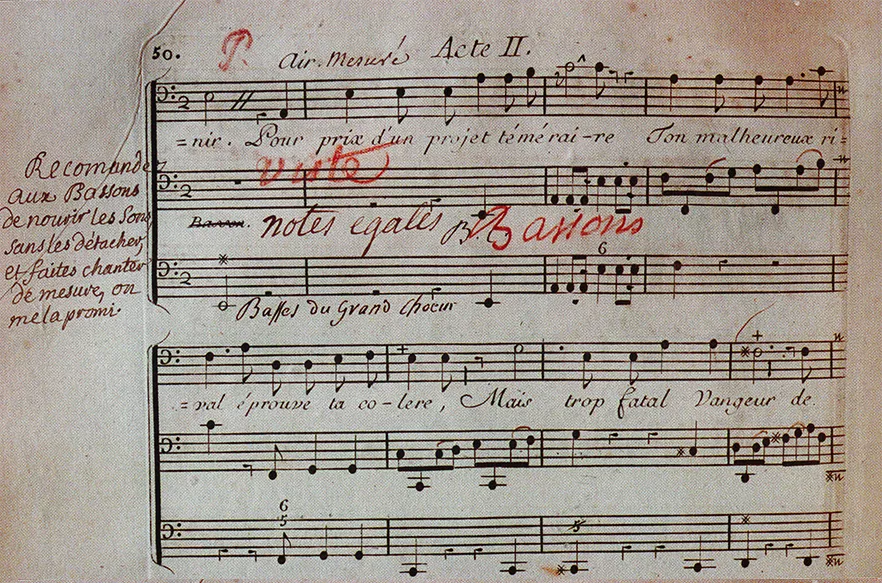 50.
P.
Air. Mesuré
Acte II.
=nir. Pour prix d'un projet témérai-re Ton malheureux ri=
Recomandez
aux Bassons
de nourir les sons
sans les détacher,
et faites chanter
de mesure, on
me la promi.
viste
notes egales
B.
Bassons
6
Basses du Grand Chœur
=val éprouve ta co-lere, Mais trop fatal Vangeur de
6
5
5